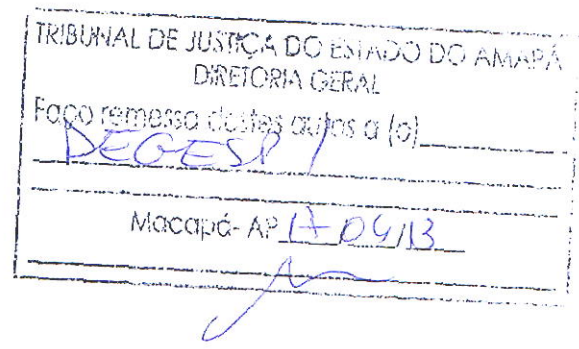 TRIBUNAL DE JUSTIÇA DO ESTADO DO AMAPÁ
DIRETORIA GERAL
Faço remessa destes autos a (o)
DEGESP /
Macapá-AP 17/04/13